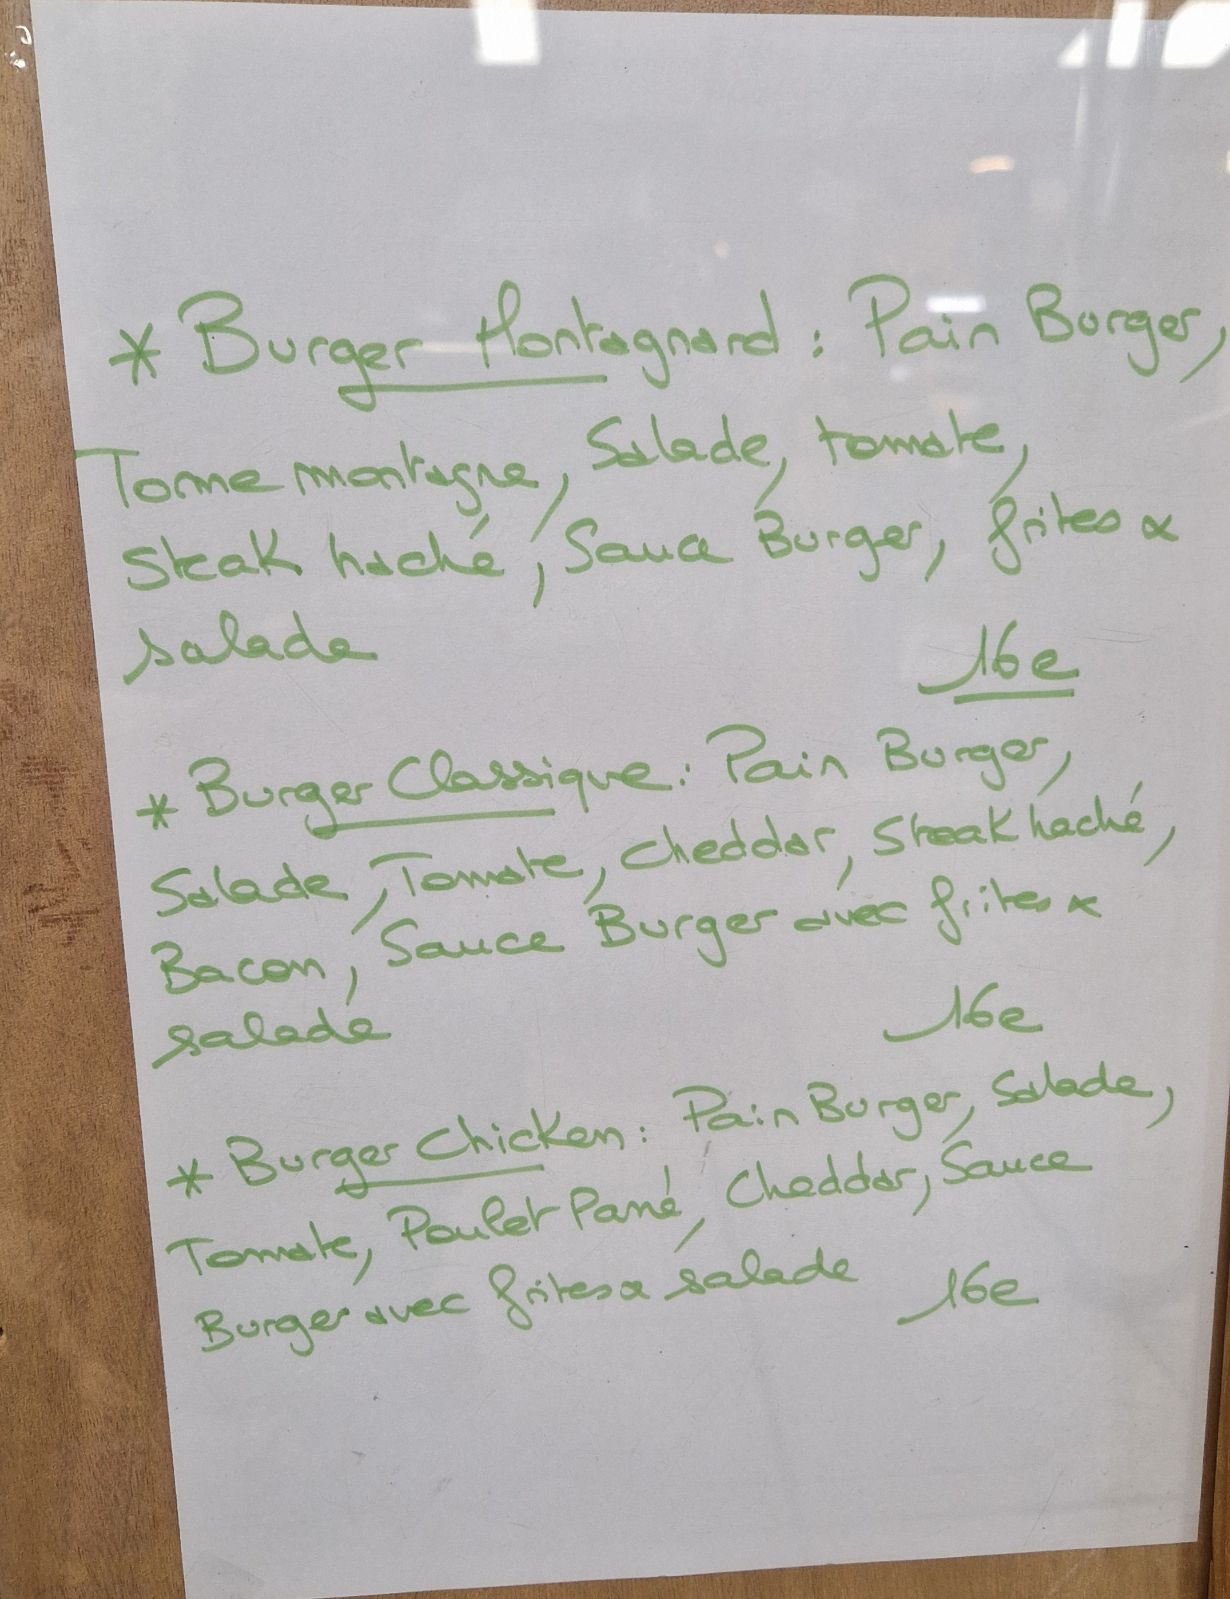 * Burger Montagnard : Pain Burger,
Tome montagne, Salade, tomate,
Steak haché, Sauce Burger, frites &
salade 16e
* Burger Classique : Pain Burger,
Salade, Tomate, Cheddar, Steak haché,
Bacon, Sauce Burger avec frites &
salade 16e
* Burger Chicken : Pain Burger, Salade,
Tomate, Poulet Pané, Cheddar, Sauce
Burger avec frites & salade 16e